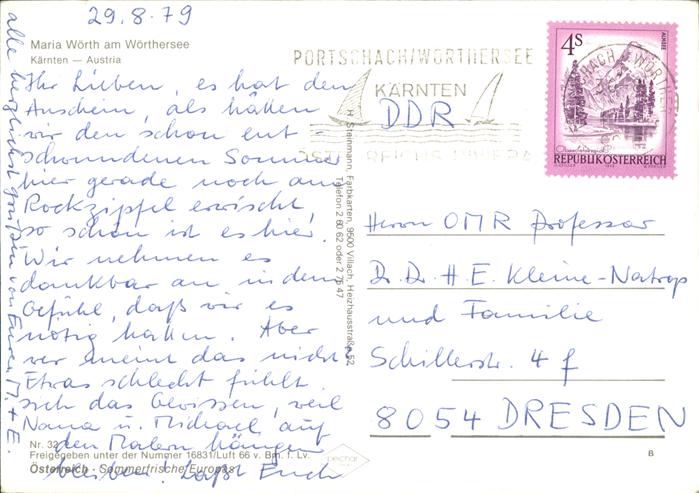 29.8.79
Maria Wörth am Wörthersee
Kärnten — Austria
Ihr Lieben, es hat den
Anschein, als hätten
wir den schon ent-
schwundenen Sommer
hier gerade noch am
Rockzipfel erwischt,
so schön ist es hier.
Wir nehmen es
dankbar an in dem
Gefühl, daß wir es
nötig hatten. Aber
wer meint das nicht?
Etwas schlecht fühlt
sich das Gewissen, weil
Nana u. Michael auf
den Malern hängen
bleiben! Laßt Euch
alle herzlichst grüßen von Euren M. + E.
Nr. 32
Freigegeben unter der Nummer 16831/Luft 66 v. Bm. f. Lv.
Österreich · Sommerfrische Europas
H. Steinmann, Farbkarten, 9500 Villach, Heizhausstraße 52
Telefon 2 60 62 oder 2 75 47
PORTSCHACH/WORTHERSEE
KÄRNTEN
DDR
4S
ALMSEE
REPUBLIK ÖSTERREICH
Herrn OMR Professor
Dr. Dr. H. E. Kleine-Natrop
und Familie
Schillerstr. 4 f
8054 DRESDEN
B